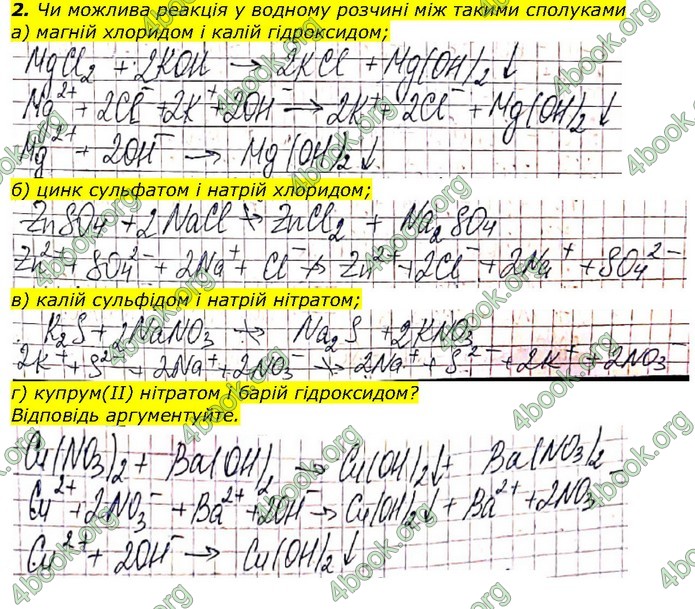 2. Чи можлива реакція у водному розчині між такими сполуками
а) магній хлоридом і калій гідроксидом;
MgCl₂ + 2KOH → 2KCl + Mg(OH)₂↓
Mg²⁺ + 2Cl⁻ + 2K⁺ + 2OH⁻ → 2K⁺ + 2Cl⁻ + Mg(OH)₂↓
Mg²⁺ + 2OH⁻ → Mg(OH)₂↓
б) цинк сульфатом і натрій хлоридом;
ZnSO₄ + 2NaCl ↛ ZnCl₂ + Na₂SO₄
Zn²⁺ + SO₄²⁻ + 2Na⁺ + Cl⁻ ↛ Zn²⁺ + 2Cl⁻ + 2Na⁺ + SO₄²⁻
в) калій сульфідом і натрій нітратом;
K₂S + 2NaNO₃ ↛ Na₂S + 2KNO₃
2K⁺ + S²⁻ + 2Na⁺ + 2NO₃⁻ ↛ 2Na⁺ + S²⁻ + 2K⁺ + 2NO₃⁻
г) купрум(II) нітратом і барій гідроксидом?
Відповідь аргументуйте.
Cu(NO₃)₂ + Ba(OH)₂ → Cu(OH)₂↓ + Ba(NO₃)₂
Cu²⁺ + 2NO₃⁻ + Ba²⁺ + 2OH⁻ → Cu(OH)₂↓ + Ba²⁺ + 2NO₃⁻
Cu²⁺ + 2OH⁻ → Cu(OH)₂↓
4book.org